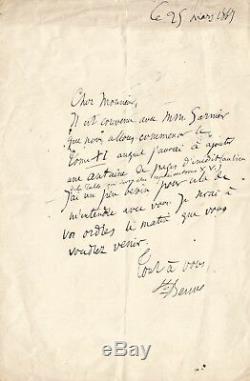 Ce 25 mars 1869
Cher Monsieur,
Il est convenu avec Mon. Garnier
que nous allons commencer le
Tome XI auquel j'aurai à ajouter
une centaine de pages d'inédit
J'ai un peu besoin pour cela de
m'entendre avec vous. Je serai à
vos ordres le matin que vous
voudrez venir.
Tout à vous,
Ste Beuve